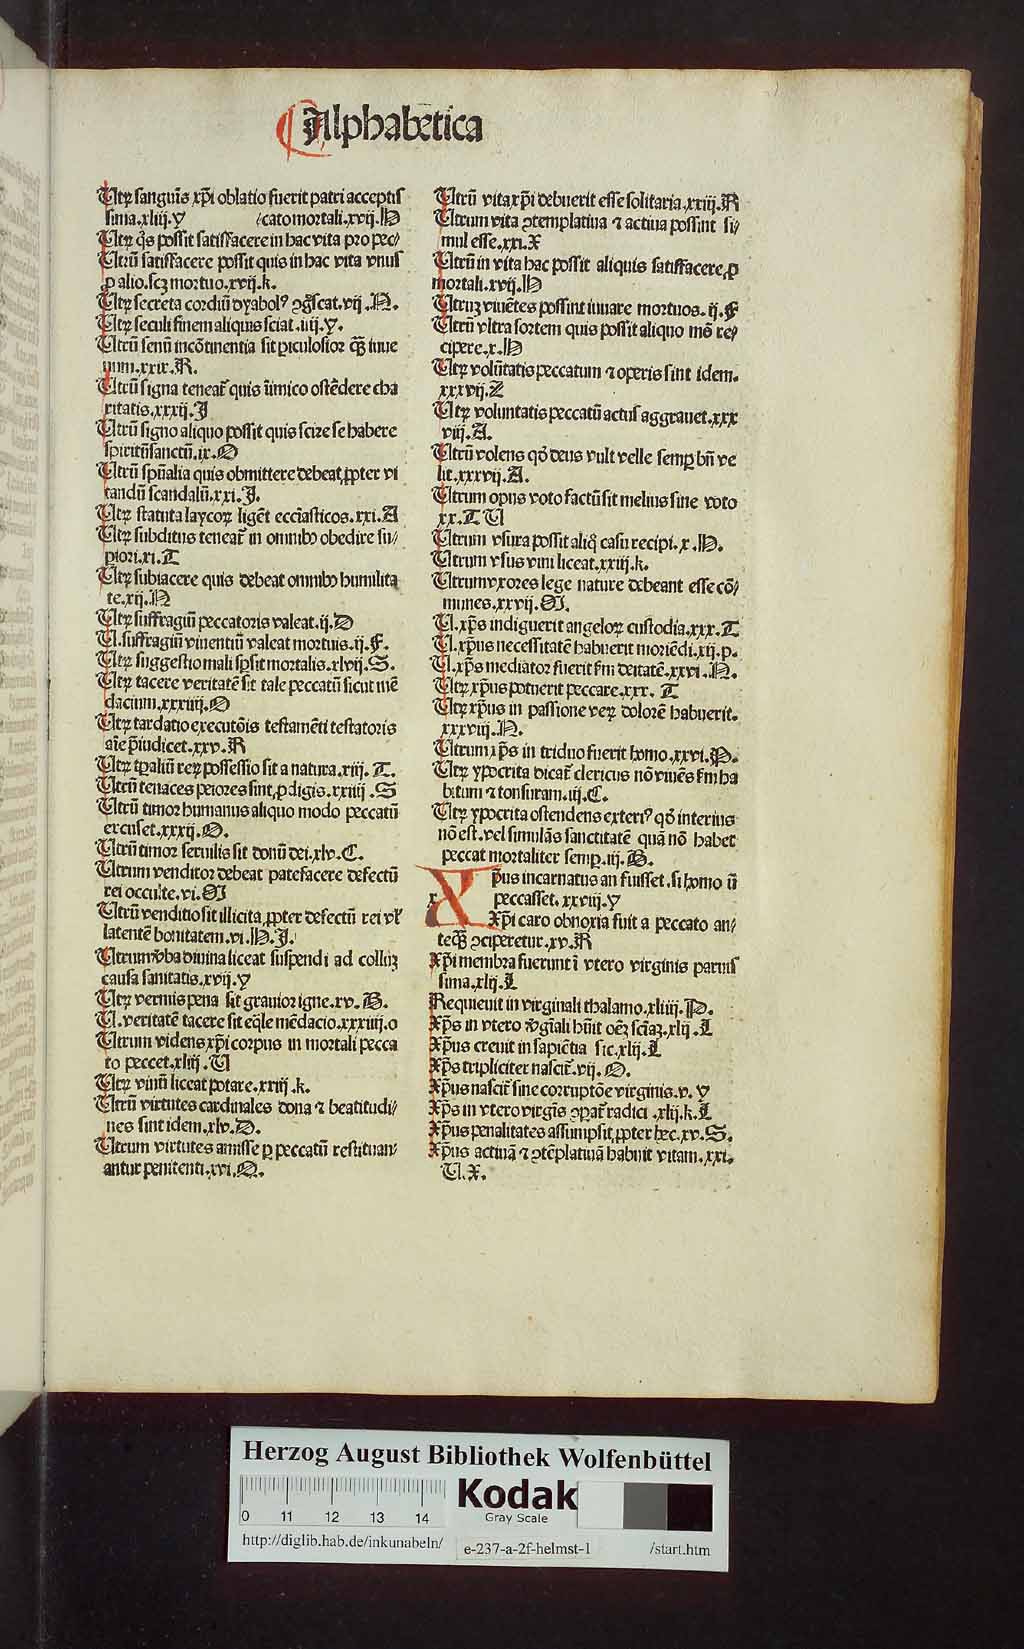 Alphabetica
Utrū sanguīs xp̄i oblatio fuerit patri acceptis
sima.xliij.y cato mortali.xvij.H
Utrū q̄s possit satisfacere in hac vita pro pec/
Utrū satisfacere possit quis in hac vita vnus
ꝓ alio.scꝫ mortuo.xvij.k.
Utrū secreta cordiū dyabolꝰ ꝯgͦscat.vij.N.
Utrū seculi finem aliquis sciat.iiij.y.
Utrū senū incōtinentia sit ꝑiculosior qꝫ̄ iuue
num.xxix.R.
Utrū signa teneat̄ quis īimico ostēdere cha
ritatis.xxxij.J
Utrū signo aliquo possit quis scire se habere
spiritūsanctū.ix.O
Utrū spūalia quis obmittere debeat ꝓpter vi
tandū scandalū.xxi.J.
Utrū statuta laycoꝝ ligēt eccīasticos.xxi.A
Utrū subditus teneat̄ in omnibꝫ obedire su/
ꝑiori.xi.T
Utrū subiacere quis debeat omnibꝫ humilita
te.xij.H
Utrū suffragiū peccatoris valeat.ij.D
U.suffragiū viuentiū valeat mortuis.ij.F.
Utrū suggestio mali sꝑ sit mortalis.xlvij.S.
Utrū tacere veritatē sit tale peccatū sicut mē
dacium.xxxiiij.O
Utrū tardatio executōis testamēti testatoris
aīe p̄iudicet.xxv.R
Utrū tꝑaliū reꝝ possessio sit a natura.xiij.T.
Utrū tenaces peiores sint ꝓdigis.xxiiij.S
Utrū timor humanus aliquo modo peccatū
excuset.xxxij.O.
Utrū timor seruilis sit donū dei.xlv.C.
Utrum venditor debeat patefacere defectū
rei occulte.vi.M
Utrū venditio sit illicita ꝓpter defectū rei vl̓
latentē bonitatem.vi.H.J.
Utrum v̓ba diuina liceat suspendi ad collūꝫ
causa sanitatis.xvij.y
Utrū vermis pena sit grauior igne.xv.B.
U.veritatē tacere sit eq̄le mēdacio.xxxiiij.o
Utrum videns xp̄i corpus in mortali pecca
to peccet.xliij.U
Utrū vinū liceat potare.xxiij.k.
Utrū virtutes cardinales dona ⁊ beatitudi/
nes sint idem.xlv.D.
Utrum virtutes amisse ꝑ peccatū restituan/
antur penitenti.xvi.Q.
Utrū vita xp̄i debuerit esse solitaria.xxiij.R
Utrum vita ꝯtemplatiua ⁊ actiua possint si/
mul esse.xxi.X
Utrū in vita hac possit aliquis satisfacere ꝓ
mortali.xvij.H
Utruꝫ viuētes possint iuuare mortuos.ij.F
Utrū vltra sortem quis possit aliquo mō re/
cipere.x.H
Utrū volūtatis peccatum ⁊ operis sint idem.
xxxvij.Z
Utrū voluntatis peccatū actus aggrauet.xxx
viij.A.
Utrū volens qō deus vult velle semꝑ bn̄ ve
lit.xxxvij.A.
Utrum opus voto factū sit melius sine voto
xx.T U
Utrum vsura possit aliq̄ casu recipi.x.H.
Utrum vsus vini liceat.xxiij.k.
Utrum vxores lege nature debeant esse cō/
munes.xxvij.M.
U.xp̄s indiguerit angeloꝝ custodia.xxx.T
U.xp̄us necessitatē habuerit moriēdi.xij.p.
U.xp̄s mediator fuerit ẜm deitatē.xxvi.N.
Utrū xp̄us potuerit peccare.xxx.T
Utrū xp̄us in passione veꝝ dolorē habuerit.
xxxviij.N.
Utrum xp̄s in triduo fuerit homo.xxvi.P.
Utrū ypocrita dicat̄ clericus nō viuēs ẜm ha
bitum ⁊ tonsuram.iij.C.
Utrū ypocrita ostendens exteriꝰ qō interius
nō est.vel simulās sanctitatē quā nō habet
peccat mortaliter semꝑ.iij.B.
Xp̄us incarnatus an fuisset.si homo n̄
peccasset.xxviij.y
Xp̄i caro obnoxia fuit a peccato an/
teqꝫ̄ ꝯciperetur.xv.R
Xp̄i membra fuerunt ī vtero virginis paruis
sima.xlij.L
Requieuit in virginali thalamo.xliiij.P.
Xp̄s in vtero v̓gīali hūit oēꝫ scīaꝫ.xlij.L
Xp̄us creuit in sapiētia sic.xlij.L
Xp̄s tripliciter nascit̄.vij.O.
Xp̄us nascit̄ sine corruptōe virginis.v.y
Xp̄s in vtero virgīs ꝯꝑat̄ radici.xlij.k.L
Xp̄us penalitates assumpsit ꝓpter hec.xv.S.
Xp̄us actiuā ⁊ ꝯtēplatiuā habuit vitam.xxi.
U.X.
Herzog August Bibliothek Wolfenbüttel
0 11 12 13 14
Kodak
Gray Scale
http://diglib.hab.de/inkunabeln/ e-237-a-2f-helmst-1 /start.htm